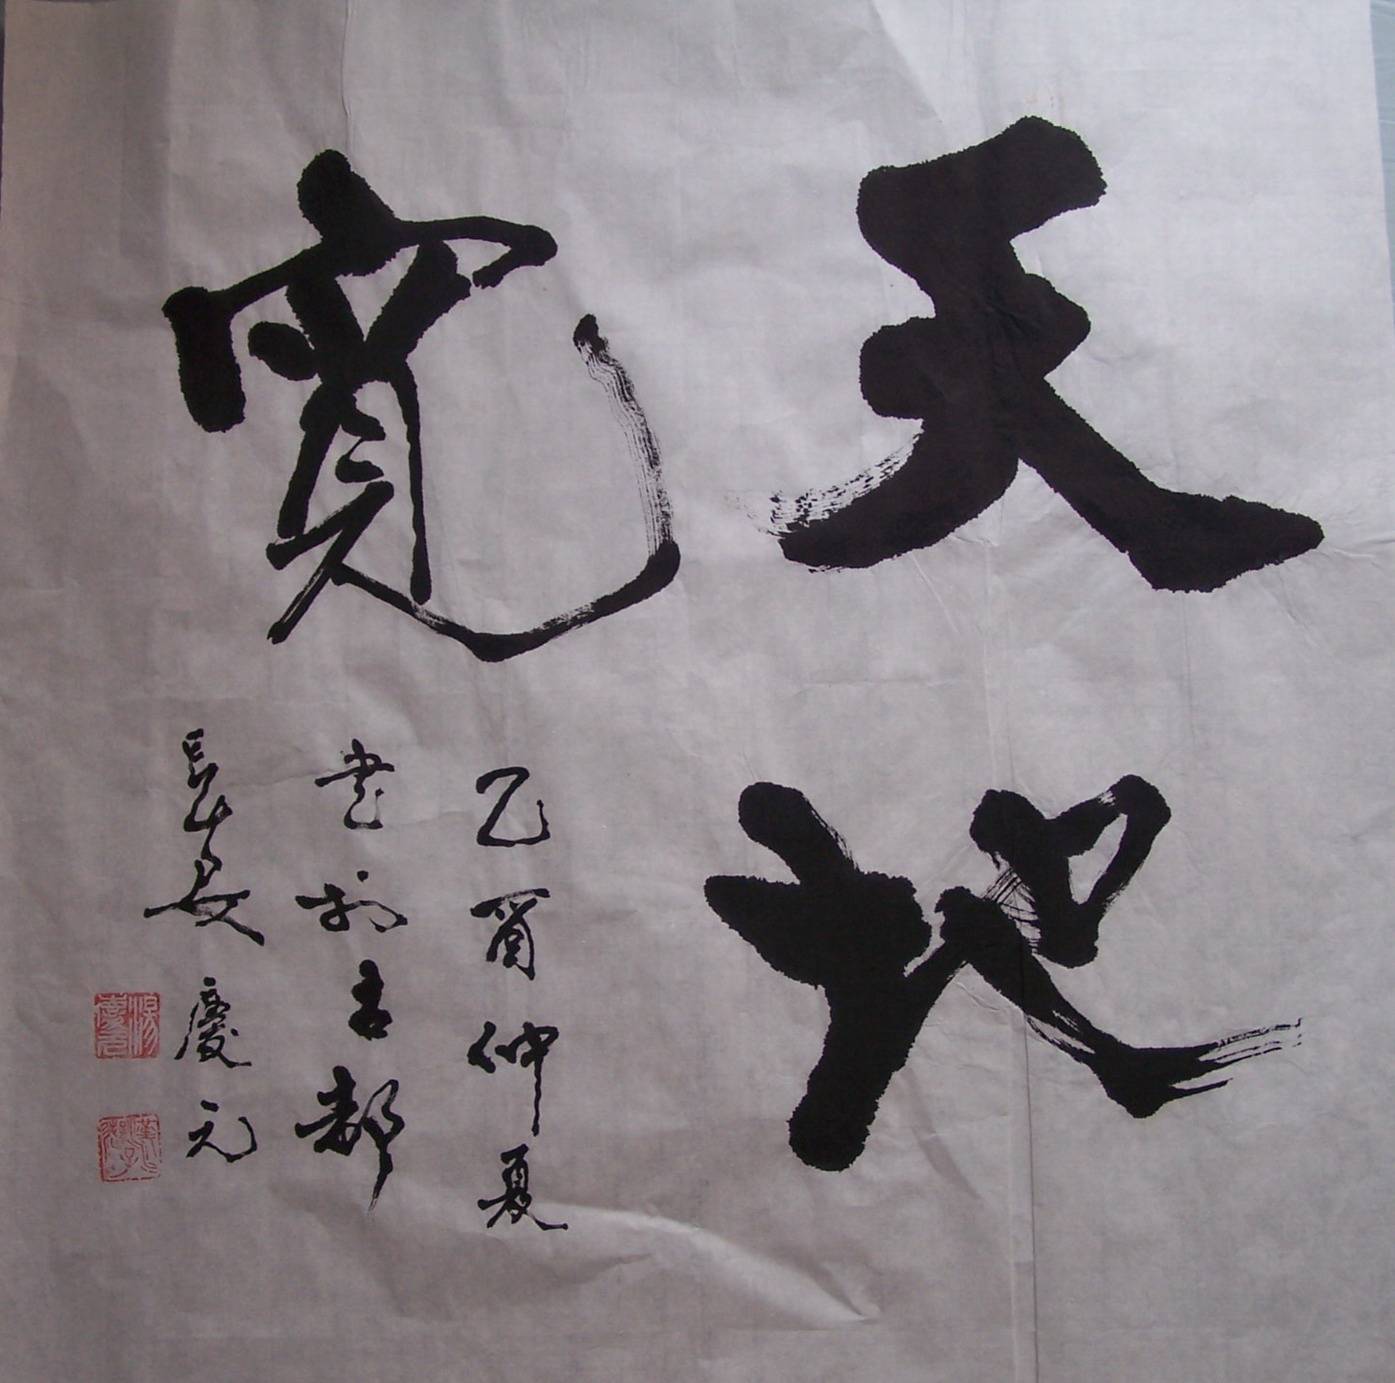 天地
寬
乙酉仲夏
書於古都
長安慶元